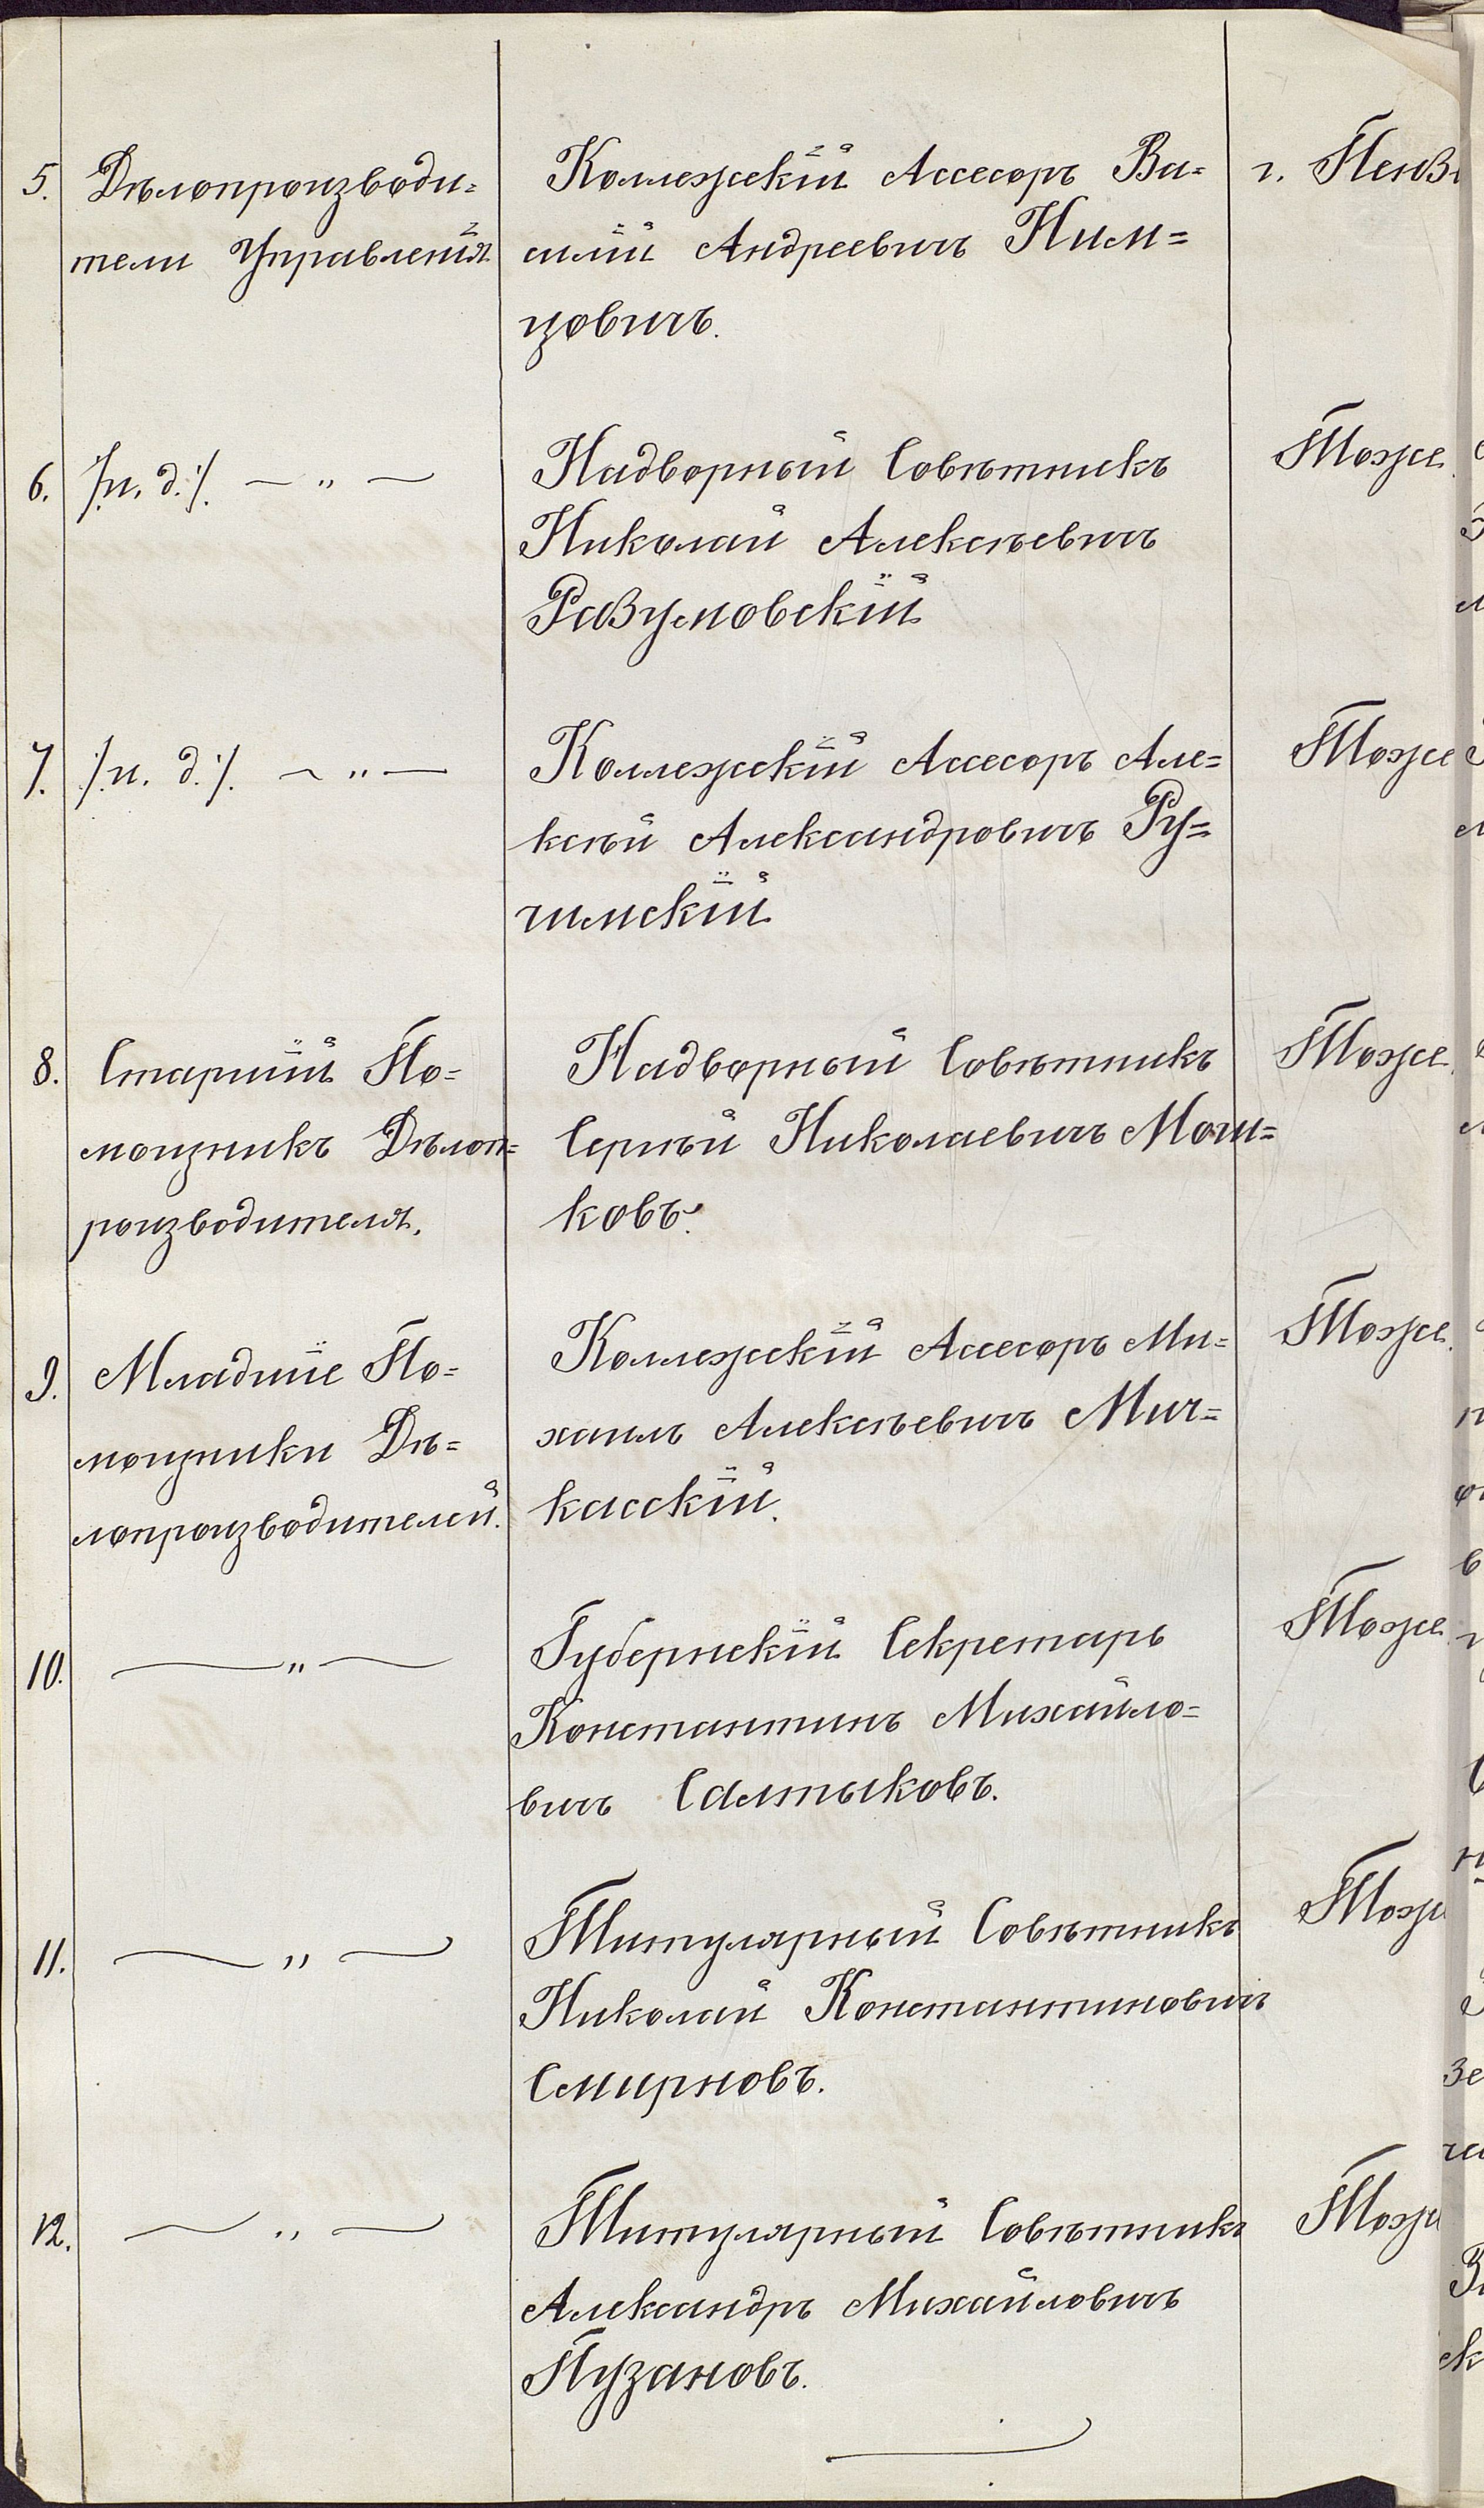 5. Дѣлопроизводи=
тели Управленія
Коллежскій Ассесоръ Ва=
силій Андреевичъ Ним=
цовичъ.
г. Пенз
6. /:и. д.:/. — „ —
Надворный Совѣтникъ
Николай Алексѣевичъ
Разумовскій
Тоже.
7. /:и. д.:/. — „ —
Коллежскій Ассесоръ Але=
ксѣй Александровичъ Ру=
чимскій
Тоже
8. Старшій По=
мощникъ Дѣлоп=
роизводителя.
Надворный Совѣтникъ
Сергѣй Николаевичъ Мош=
ковъ.
Тоже.
9. Младшіе По=
мощники Дѣ=
лопроизводителей.
Коллежскій Ассесоръ Ми=
хаилъ Алексѣевичъ Мич=
касскій.
Тоже.
10. — „ —
Губернскій Секретарь
Константинъ Михайло=
вичъ Салтыковъ.
Тоже.
11. — „ —
Титулярный Совѣтникъ
Николай Константиновичъ
Смирновъ.
Тоже
12. — „ —
Титулярный Совѣтникъ
Александръ Михайловичъ
Пузановъ.
Тоже